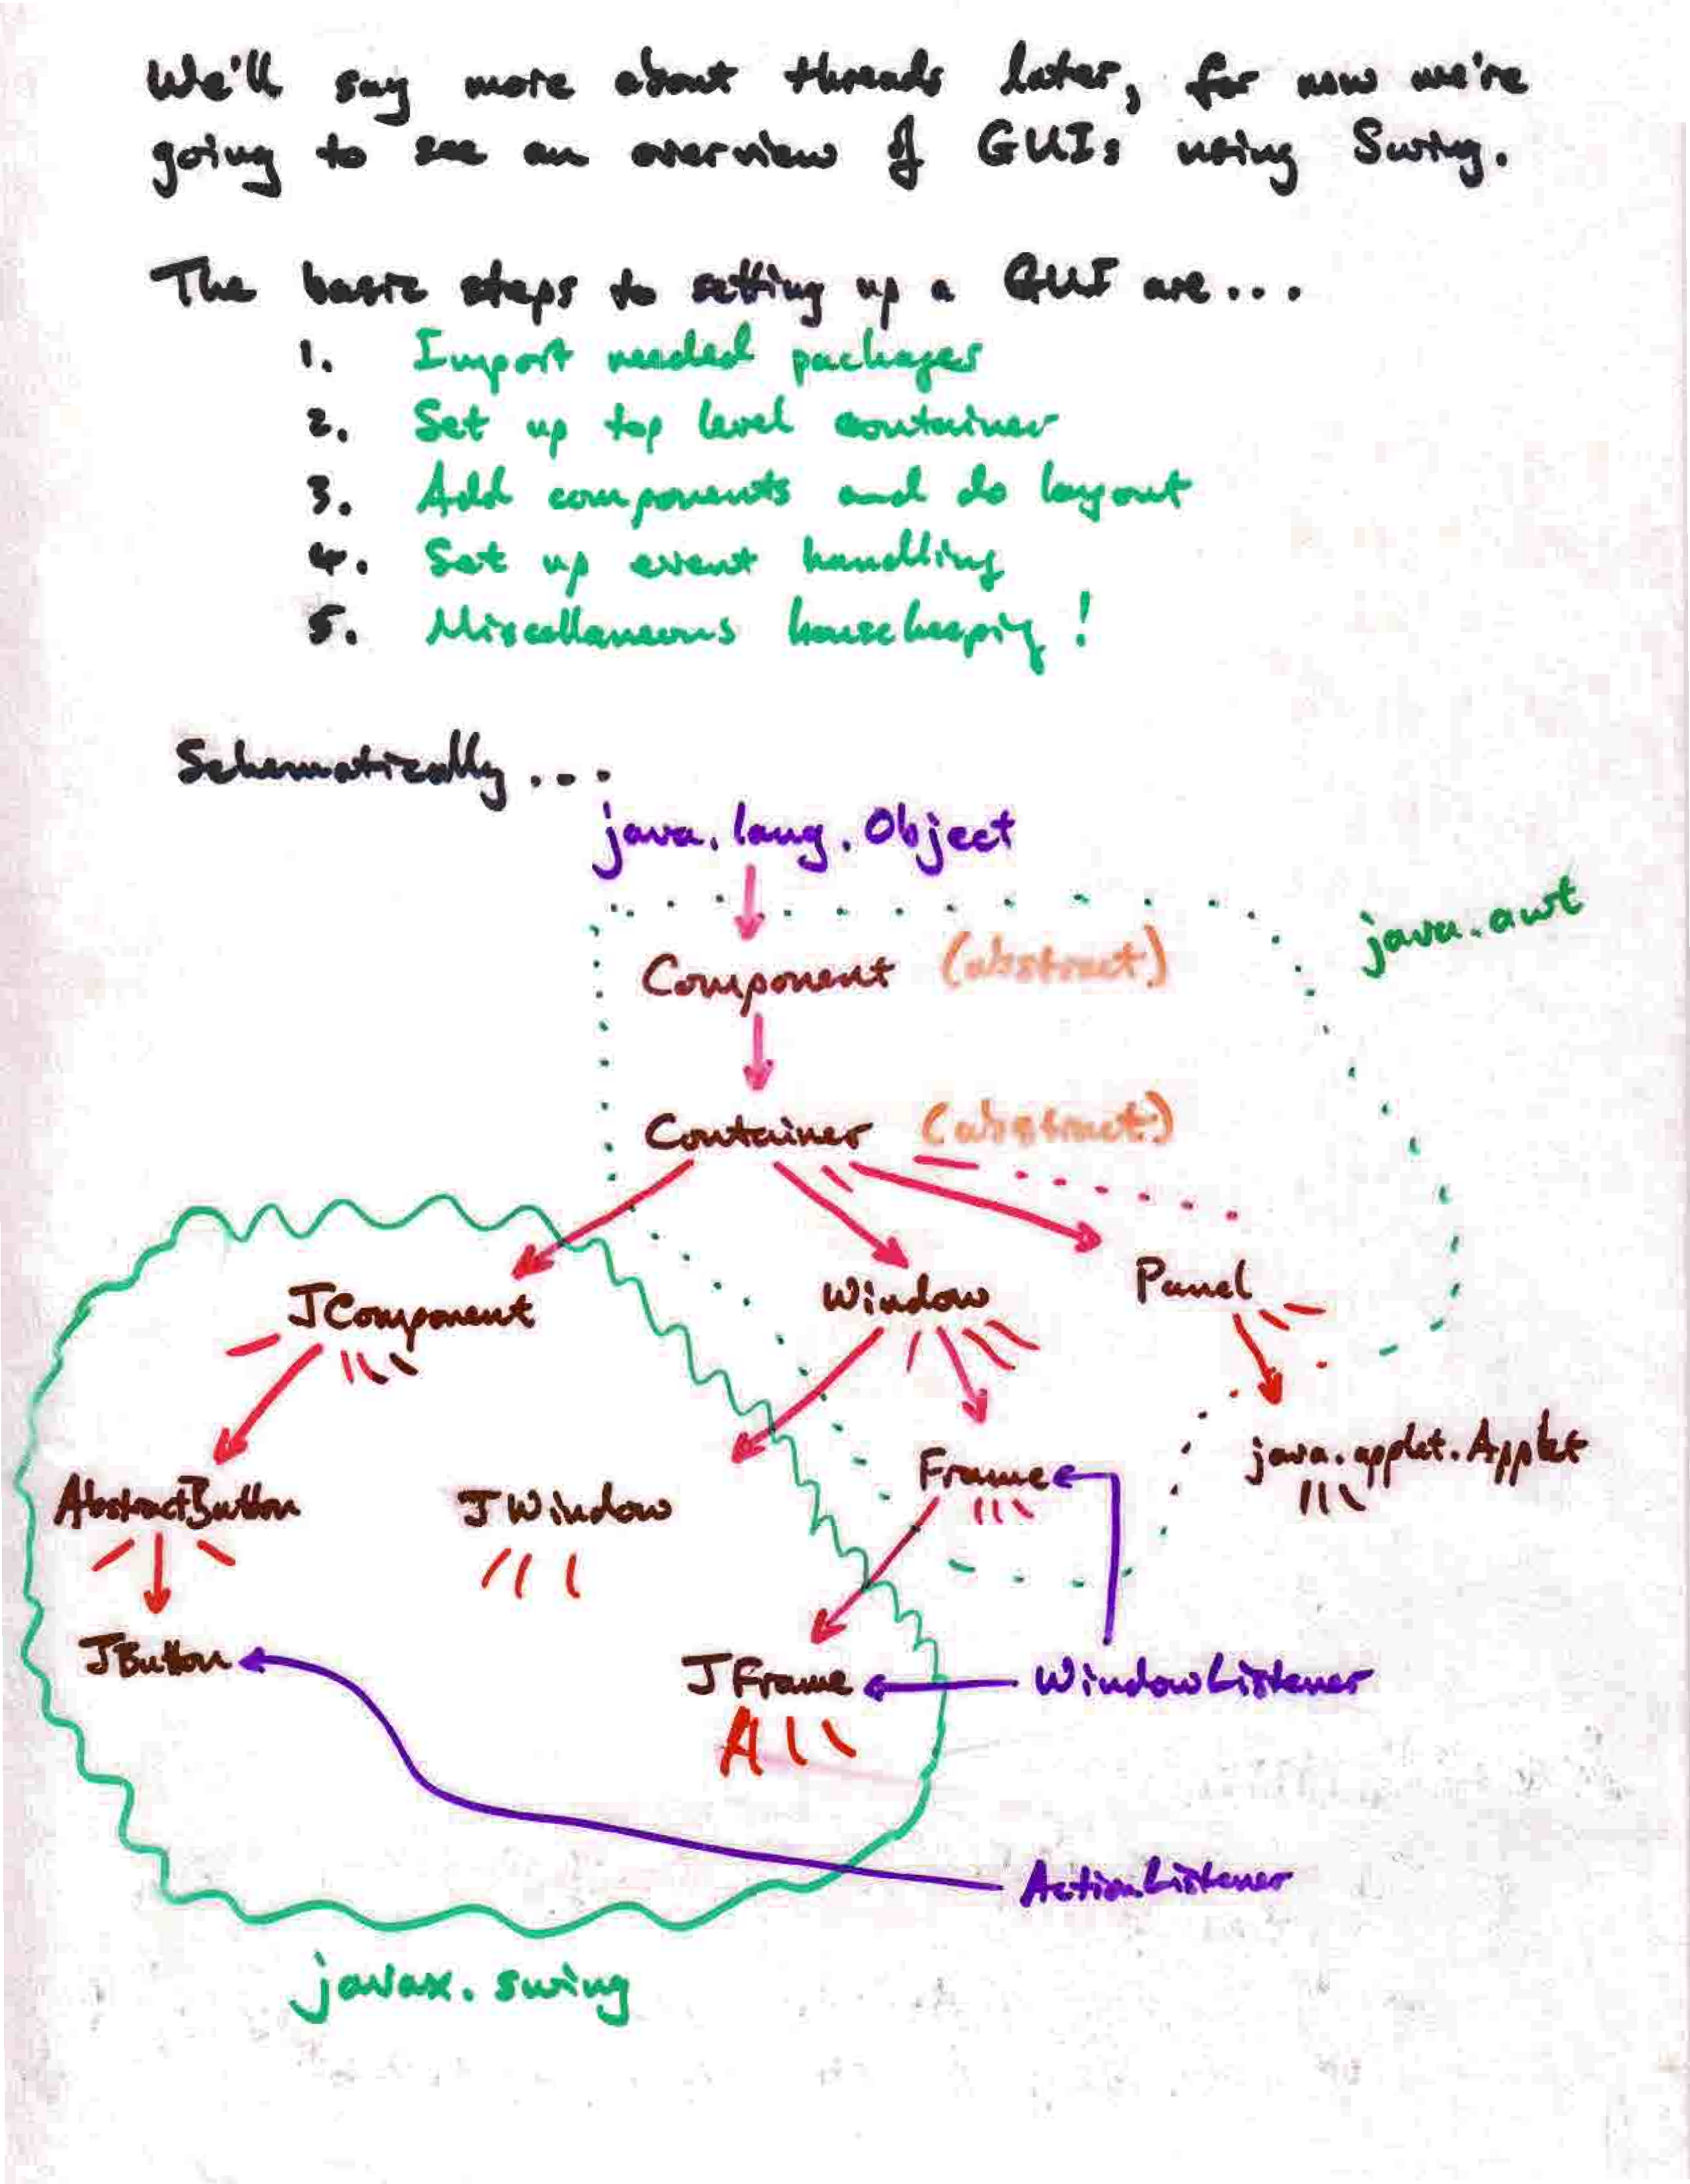 We'll say more about threads later, for now we're
going to see an overview of GUIs using Swing.
The basic steps to setting up a GUI are...
1. Import needed packages
2. Set up top level container
3. Add components and do layout
4. Set up event handling
5. Miscellaneous housekeeping!
Schematically...
java.lang.Object
java.awt
Component (abstract)
Container (abstract)
JComponent
Window
Panel
AbstractButton
JWindow
Frame
java.applet.Applet
JButton
JFrame
WindowListener
ActionListener
javax.swing